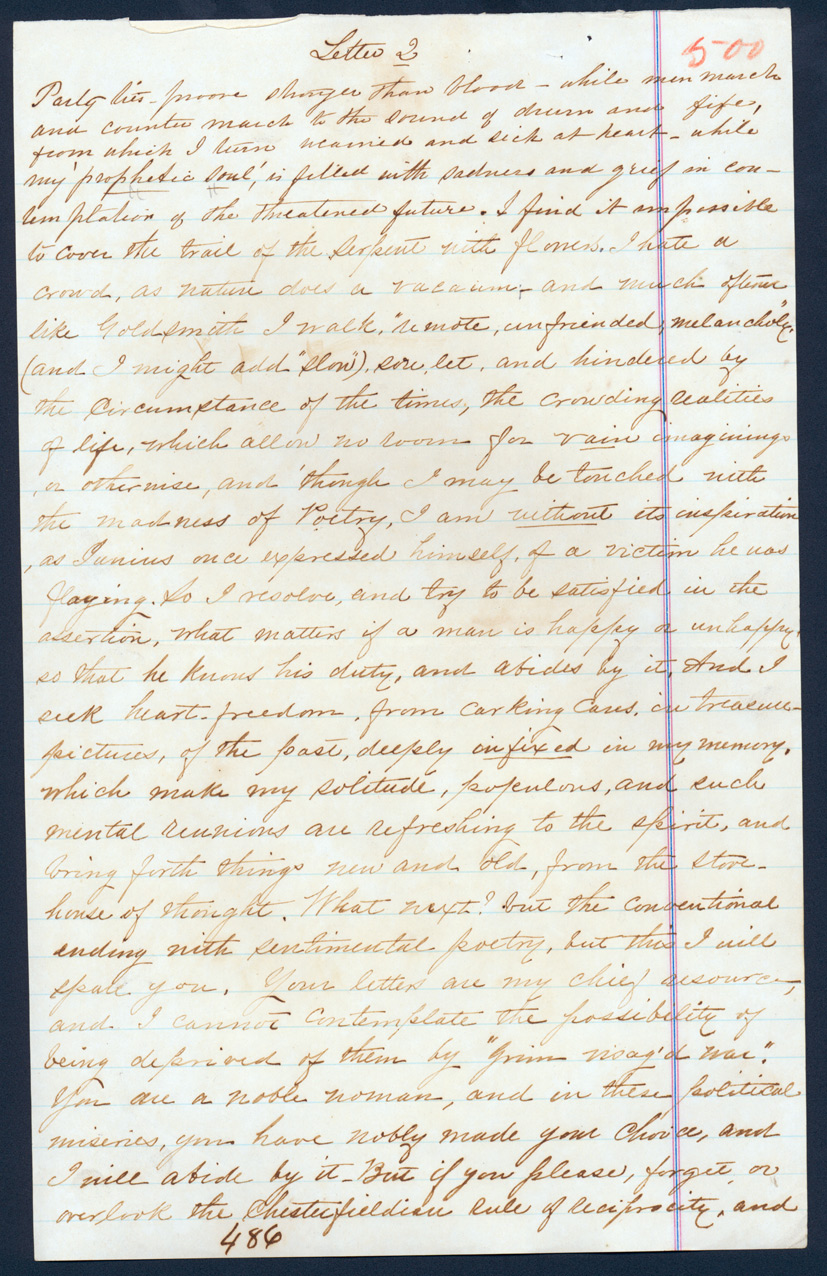 Letter 2
500
Party ties - proove stronger than blood - while men march
and counter march to the sound of drum and fife,
from which I turn wearied and sick at heart - while
my 'prophetic soul', is filled with sadness and grief in con-
templation of the threatened future. I find it impossible
to cover the trail of the serpent with flowers. I hate a
crowd, as nature does a vacuum; and much oftener
like Goldsmith I walk, "remote, unfriended, melancholy"
(and I might add "slow"), sore, let, and hindered by
the circumstance of the times, the crowding realities
of life, which allow no room for vain imaginings
, or otherwise, and though I may be touched with
the madness of Poetry, I am without its inspiration
, as Junius once expressed himself, of a victim he was
flaying. So I resolve, and try to be satisfied in the
assertion, what matters if a man is happy or unhappy,
so that he knows his duty, and abides by it. And I
seek heart-freedom, from carking cares, in treasure-
pictures, of the past, deeply infixed in my memory,
which make my solitude, populous, and such
mental reunions are refreshing to the spirit, and
bring forth things new and old, from the store-
house of thought. What next? but the conventional
ending with sentimental poetry, but this I will
spare you. Your letters are my chief resource,
and I cannot contemplate the possibility of
being deprived of them by "grim visag'd war".
You are a noble woman, and in these political
miseries, you have nobly made your choice, and
I will abide by it - But if you please, forget, or
overlook the Chesterfieldian rule of reciprocity, and
486